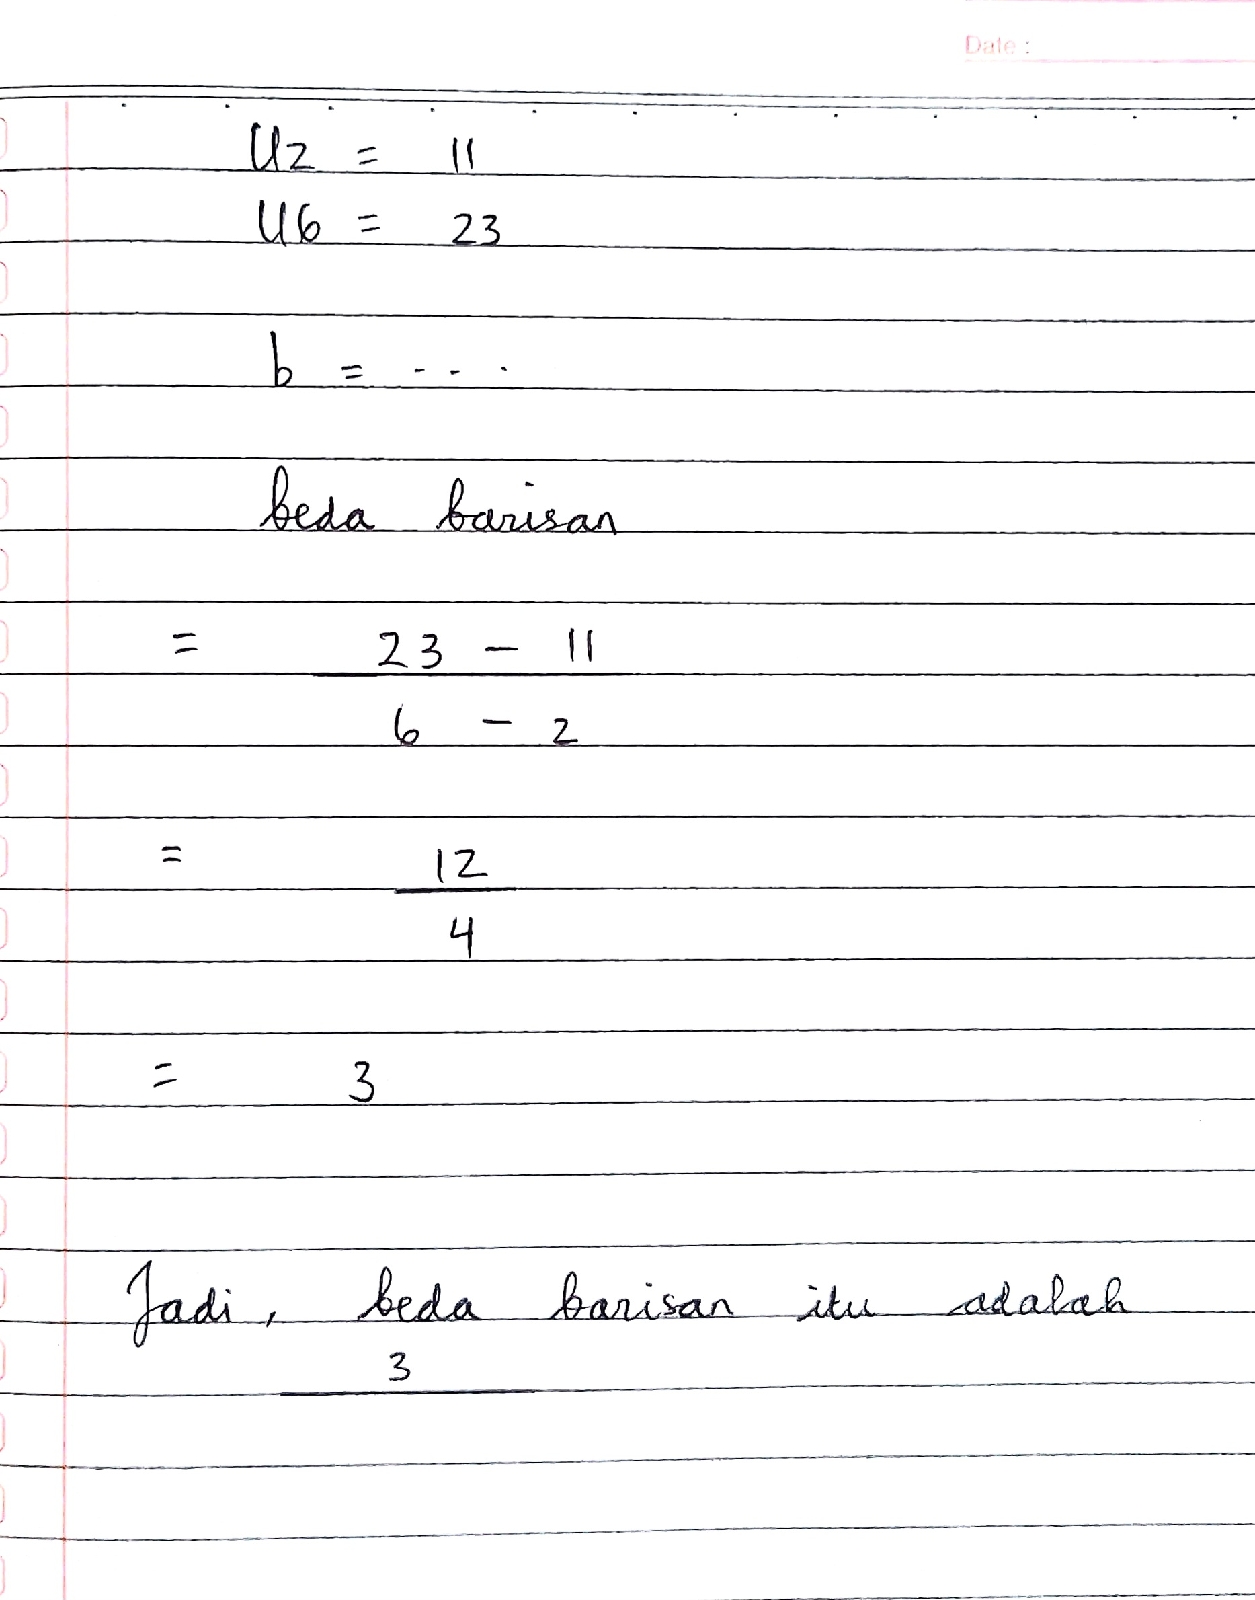 Date :
U2 = 11
U6 = 23
b = ....
beda barisan
= 23 - 11
6 - 2
= 12
4
= 3
Jadi, beda barisan itu adalah
3